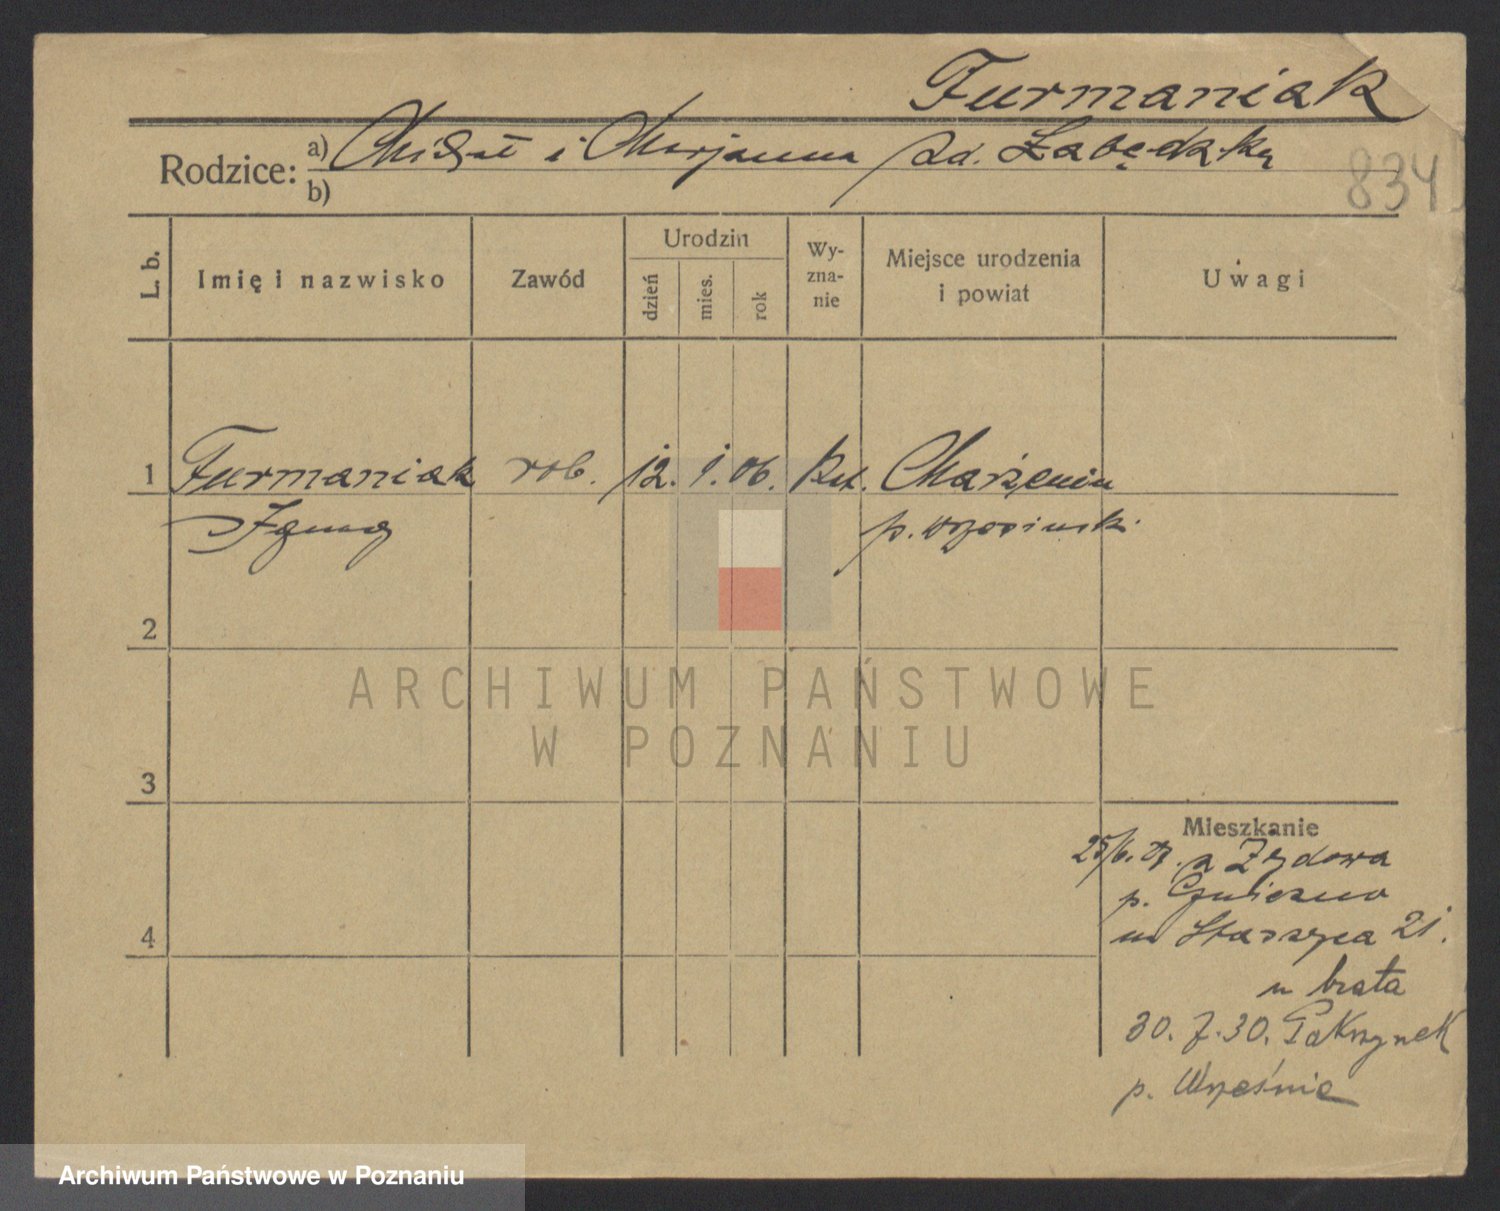 Furmaniak
Rodzice: a) Michał i Marjanna zd. Łabędzka
b)
834
L. b.
Imię i nazwisko
Zawód
Urodzin
dzień
mies.
rok
Wy-
zna-
nie
Miejsce urodzenia
i powiat
Uwagi
1 Furmaniak rob. 12. 1. 06. kat. Marzenin
Ignacy p. wrzesiński
2
3
4
Mieszkanie
z Żydowa
p. Gniezno
Staszyca 21.
u brata
30. 7. 30. Pakszynek
p. Września
ARCHIWUM PAŃSTWOWE
W POZNANIU
Archiwum Państwowe w Poznaniu